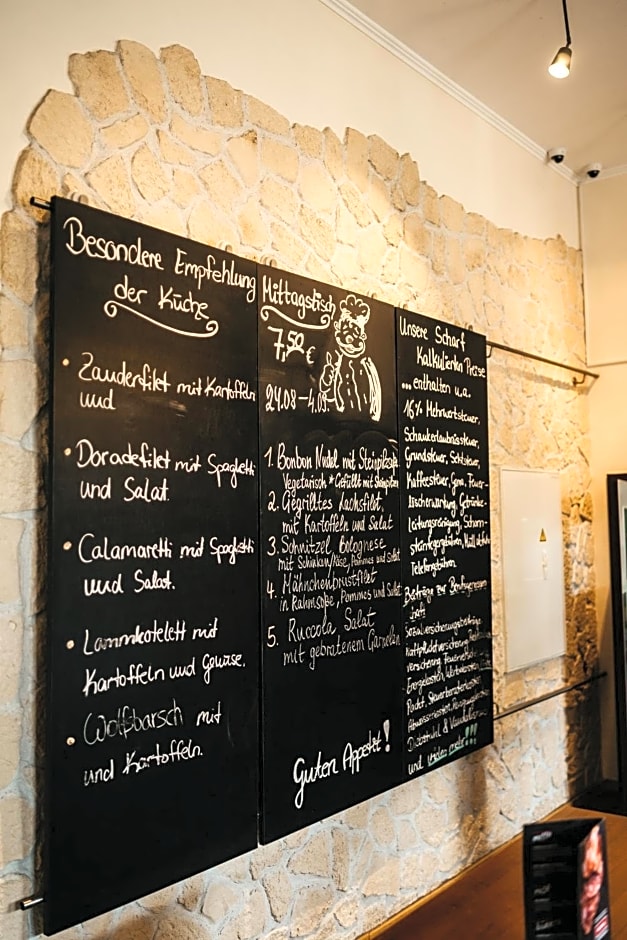 Besondere Empfehlung
der Küche
• Zanderfilet mit Kartoffeln
und
• Doradefilet mit Spaghetti
und Salat.
• Calamaretti mit Spaghetti
und Salat.
• Lammkotelett mit
Kartoffeln und Gemüse.
• Wolfsbarsch mit
und Kartoffeln.
Mittagstisch
7,50 €
24.08 – 4.09.
1. Bonbon Nudel mit Steinpilzsoße
Vegetarisch * Gefüllt mit Steinpilzen
2. Gegrilltes Lachsfilet,
mit Kartoffeln und Salat
3. Schnitzel Bolognese
mit Schinken/Käse, Pommes und Salat
4. Hähnchenbrustfilet
in Rahmsoße, Pommes und Salat
5. Ruccola Salat
mit gebratenem Garnelen
Guten Appetit!
Unsere Scharf
Kalkulierten Preise
... enthalten u.a.
16% Mehrwertsteuer,
Schankerlaubnissteuer,
Grundsteuer, Sektsteuer,
Kaffeesteuer, Gema, Feuer-
löscherwartung, Getränke-
leitungsreinigung, Schorn-
steinfegergebühren, Müllabfuhr
Telefongebühren.
Beiträge zur Berufsgenossen
schaft
Sozialversicherungsbeiträge
Haftpflichtversicherung
versicherung,
Energiekosten,
Pacht, Steuerberaterkosten
Diebstahl & Vandalismus
und vieles mehr!!!